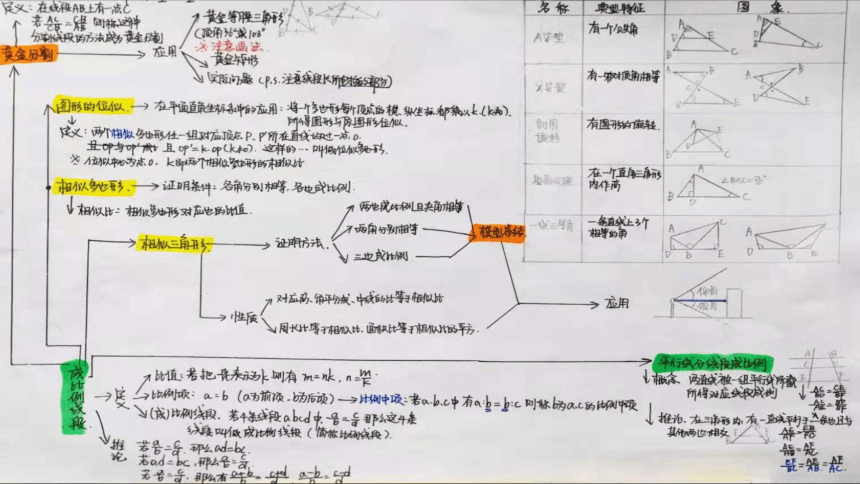 定义：在线段AB上有一点C
若AC/CB=CB/AB 则称这种
分割线段的方法成为黄金分割
黄金分割
应用
黄金等腰三角形
(顶角36°或108°
※注意画法
黄金矩形
实际问题 (p.s.注意线段长
图形的位似
在平面直角坐标系中的应用：将一个多边形每个顶点的横、纵坐标都乘以k.(k≠0).
所得图形与原图形位似.
定义：两个相似多边形任一组对应顶点P、P'所在直线均过一点O.
且OP'=k·OP(k≠0). 这样的…叫做位似多边形.
※位似中心为点O. k即两个相似多边形的相似比
相似多边形
证明条件：各角分别相等、各边成比例.
相似比：相似多边形对应边的比值.
相似三角形
证明方法
两边成比例且夹角相等
两角分别相等
三边成比例
性质
对应高、角平分线、中线的比等于相似比
周长比等于相似比、面积比等于相似比的平方.
应用
名称 典型特征 图象
A字型 有一个公共角
X字型 有一对对顶角相等
有图形的旋转.
在一个直角三角形
内作高
∠BAC=90°
一线三等角 一条直线上3个
相等的角
仰角
成比例线段
定义
比值：若把 表示为k.则有 m=nk, n=m/k
比例项：a=b (a为前项、b为后项)
比例中项：若a.b.c中有a:b=b:c 则称b为a.c的比例中项
(成)比例线段. 若4条线段abcd中 a/b=c/d 那么这4条
线段叫做成比例线段 (简称比例线段).
推论
若a/b=c/d. 那么ad=bc.
若ad=bc, 那么a/b=c/d.
若a/b=c/d. 那么有 a+b/b=c+d/d a-b/b=c-d/d
平行线分线段成比例
概念：两直线被一组平行线所截
所得对应线段成比例
推论：在三角形内.有一直线平行于一条边且与
其他两边相交